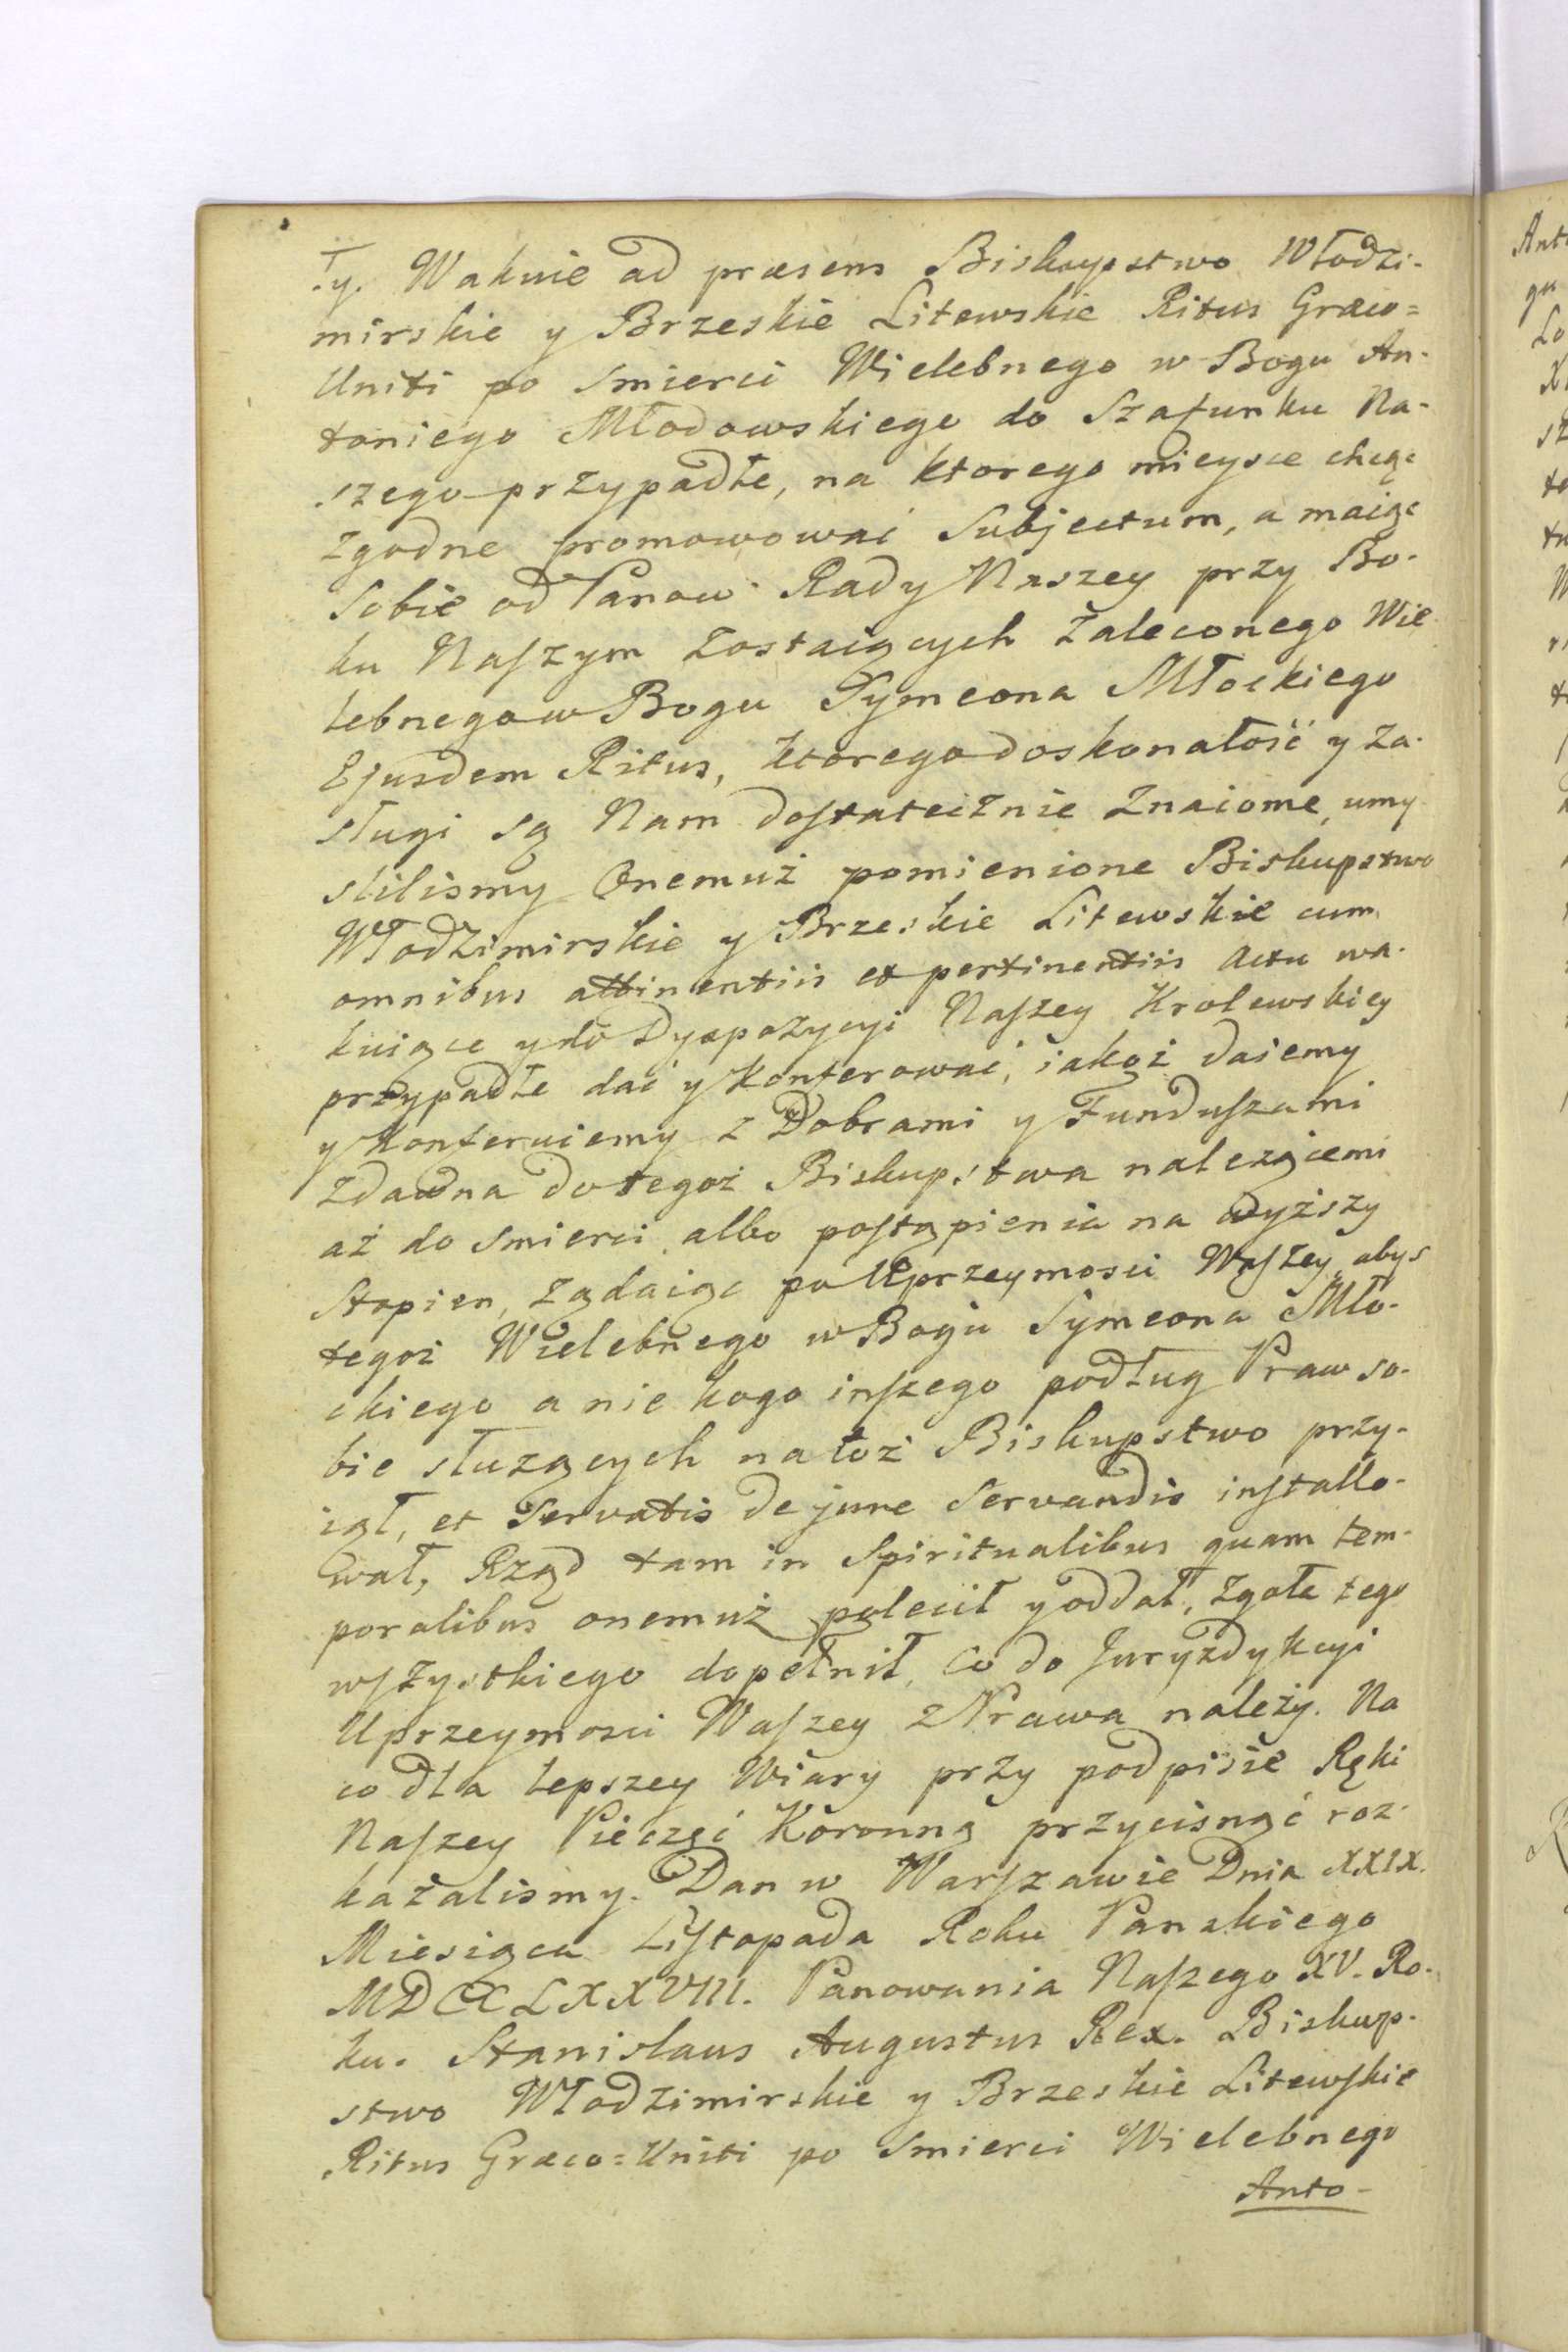 ły. Wakuie ad præsens Biskupstwo Włodzi-
mirskie y Brzeskie Litewskie Ritus Græco=
Uniti po Smierci Wielebnego w Bogu An-
toniego Młodowskiego do Szafunku Na-
szego przypadłe, na ktorego mieysce chcąc
zgodne promowować Subjectum, a maiąc
Sobie od Panow Rady Naszey przy Bo-
ku Naszym Zostaiących Zaleconego Wie-
lebnego w Bogu Symeona Młockiego
Ejusdem Ritus, ktorego doskonałość y Za-
sługi są Nam dostatecznie Znaiome, umy-
slilismy Onemuż pomienione Biskupstwo
Włodzimirskie y Brzeskie Litewskie cum
omnibus attinentiis et pertinentiis actu wa-
kuiące y do Dyspozycyi Naszey Krolewskiey
przypadłe dać y Konferować, iakoż daiemy
y Konferuiemy z Dobrami y Funduszami
zdawna do tegoż Biskupstwa należącemi
aż do Smierci albo postąpienia na wyższy
Stopien, żądaiąc po Uprzeymosci Waszey, abyś
tegoż Wielebnego w Bogu Symeona Mło-
ckiego a nie kogo inszego podług Praw so-
bie służących na toż Biskupstwo przy-
iął, et Servatis de jure Servandis installo-
wał, Rząd tam in Spiritualibus quam tem-
poralibus onemuż polecił y oddał, Zgoła tego
wszystkiego dopełnił, co do Juryzdykcyi
Uprzeymosci Waszey z Prawa należy. Na
co dla lepszey Wiary przy podpisie Ręki
Naszey Pieczęć Koronną przycisnąć roz-
kazalismy. Dan w Warszawie Dnia XXIX.
Miesiąca Listopada Roku Panskiego
MDCCLXXVIII. Panowania Naszego XV. Ro-
ku. Stanislaus Augustus Rex. Biskup-
stwo Włodzimirskie y Brzeskie Litewskie
Ritus Græco=Uniti po Smierci Wielebnego
Anto-